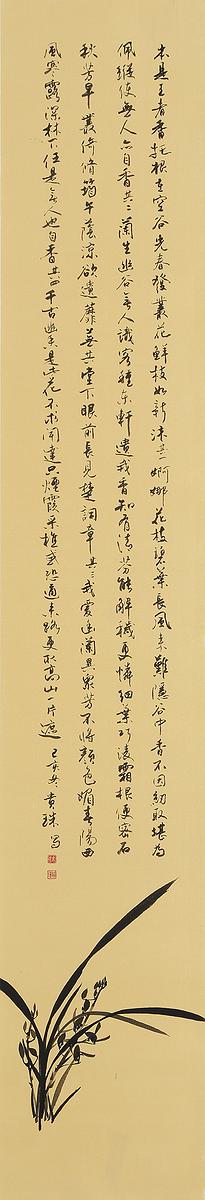 本是王者香托根在空谷先春發叢花鮮枝如新沐其一婀娜花枝碧葉長風來難隱谷中香不因紉取堪為
佩縱使無人亦自香其二蘭生幽谷無人識客種東軒遺我香知有清芬能解穢更憐細葉巧凌霜根便密石
秋芳早叢倚修筠午蔭涼欲遣蘼蕪共堂下眼前長見楚詞章其三我愛幽蘭異眾芳不將顏色媚春陽西
風寒露深林下任是無人也自香其四千古幽貞是此花不求聞達只煙霞采樵或恐通來路更取高山一片遮 己亥冬貴珠寫